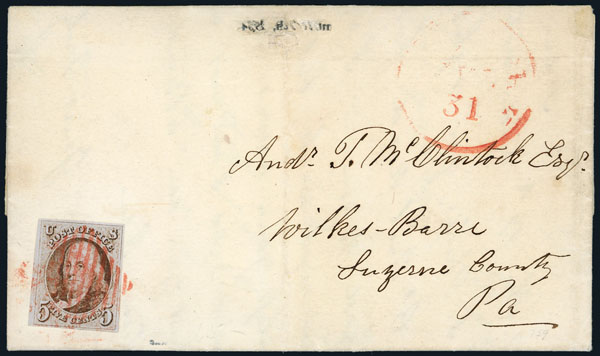 31
Andr. T. McClintock Esqr.
Wilkes-Barre
Luzerne County
Pa
U S
POST OFFICE
5 FIVE CENTS 5